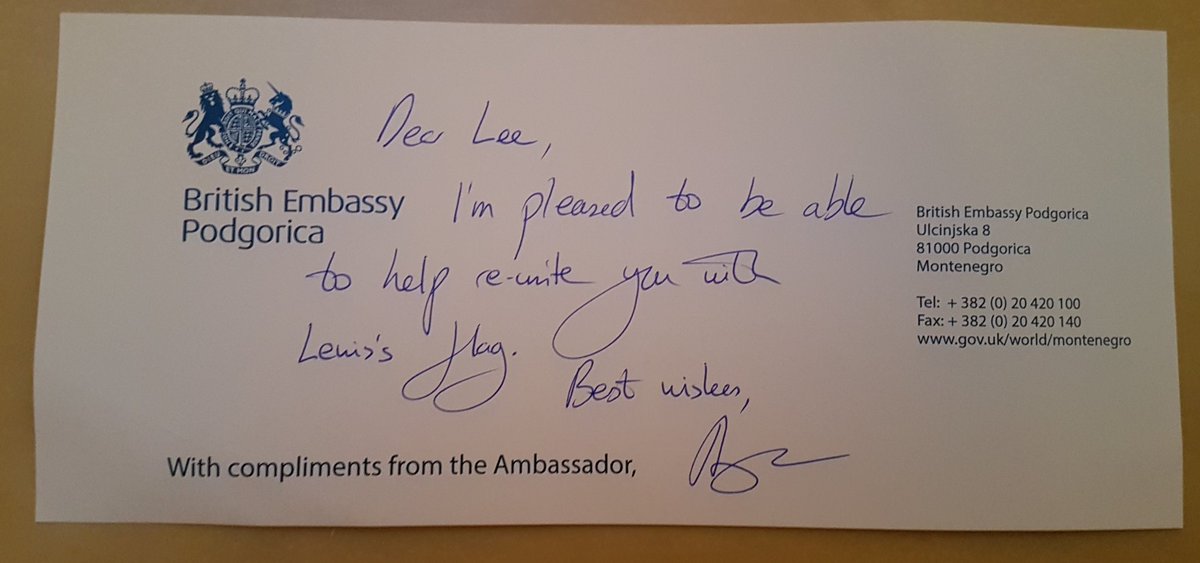 Dear Lee,
British Embassy
Podgorica
I'm pleased to be able
to help re-unite you with
Lewis's flag.
Best wishes,
With compliments from the Ambassador,
British Embassy Podgorica
Ulcinjska 8
81000 Podgorica
Montenegro
Tel: + 382 (0) 20 420 100
Fax: + 382 (0) 20 420 140
www.gov.uk/world/montenegro